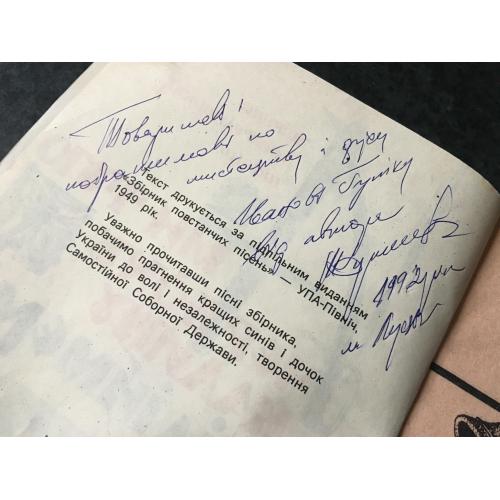 Товаришеві і
побратимові по
мистецтву і духу
Іванові
від автора
1992 рік
м.
Текст друкується за підпільним виданням
«Збірник повстанчих пісень» — УПА-Північ,
1949 рік.
Уважно прочитавши пісні збірника,
побачимо прагнення кращих синів і дочок
України до волі і незалежності, творення
Самостійної Соборної Держави.